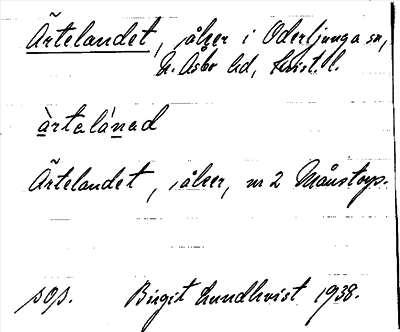 Ärtelandet, i åker i Oderljunga sn,
N. Åsbo hd, Krist. l.
àrtelánad
Ärtelandet, åker, nr 2 Månstorp.
sos. Birgit Lundkvist 1938.